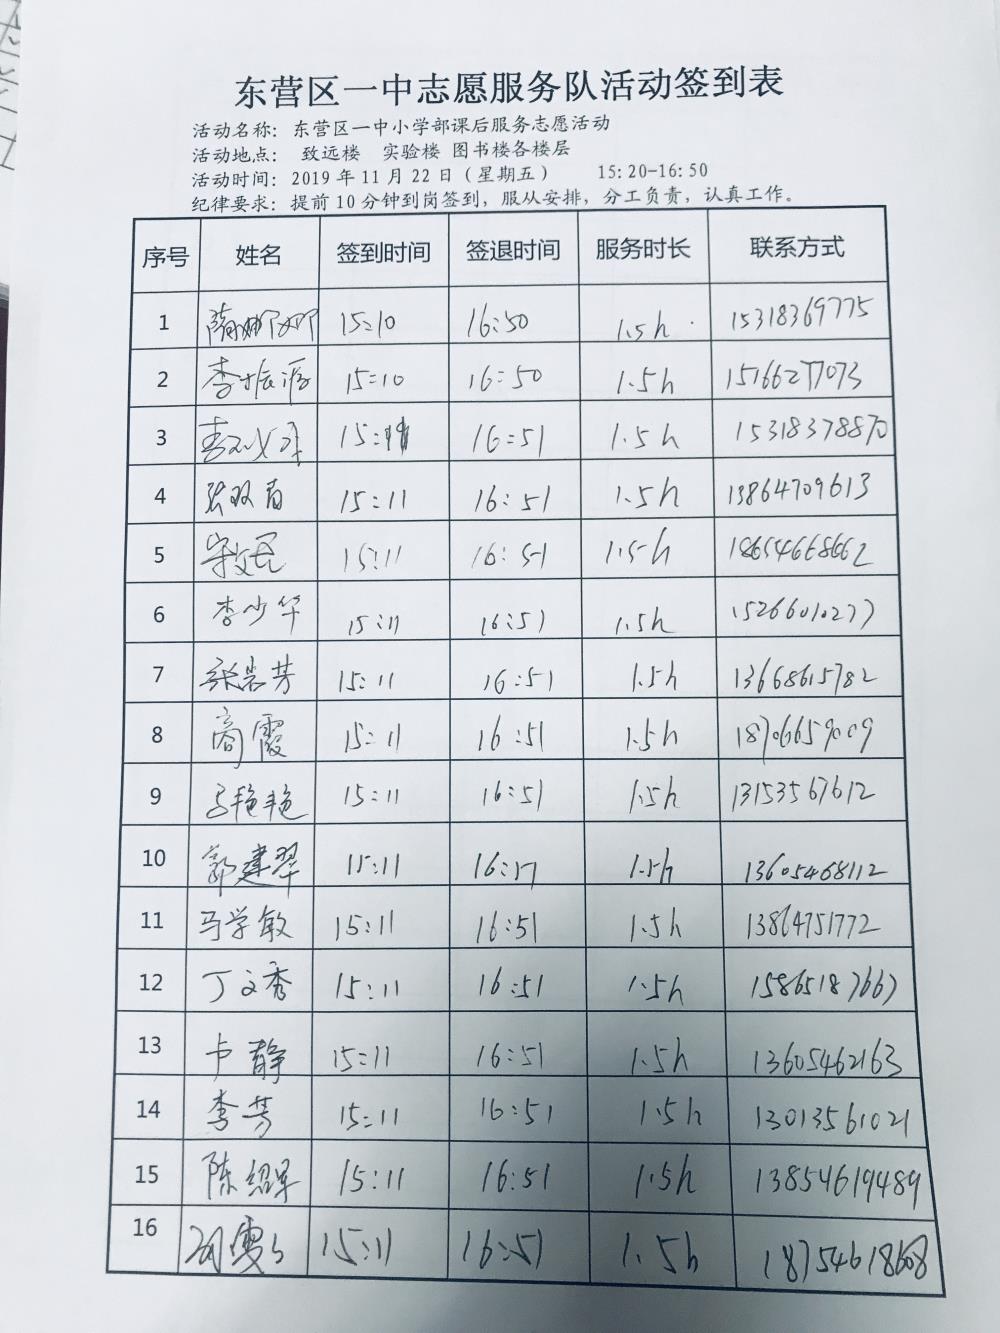 东营区一中志愿服务队活动签到表
活动名称：东营区一中小学部课后服务志愿活动
活动地点： 致远楼 实验楼 图书楼各楼层
活动时间：2019年11月22日（星期五） 15:20-16:50
纪律要求：提前10分钟到岗签到，服从安排，分工负责，认真工作。
序号 姓名 签到时间 签退时间 服务时长 联系方式
1 隋娜娜 15:10 16:50 1.5h 15318369775
2 李振海 15:10 16:50 1.5h 15166277073
3 15:11 16:51 1.5h 15318378870
4 张双百 15:11 16:51 1.5h 13864709613
5 宋文民 15:11 16:51 1.5h 18654668662
6 李少华 15:11 16:51 1.5h 15266010277
7 张岩芳 15:11 16:51 1.5h 13668615782
8 商霞 15:11 16:51 1.5h 18706659009
9 马艳艳 15:11 16:51 1.5h 13153567612
10 郭建翠 15:11 1.5h 13605468112
11 马学敏 15:11 16:51 1.5h 13864751772
12 丁文秀 15:11 16:51 1.5h 15865187667
13 卢静 15:11 16:51 1.5h 13605462163
14 李芳 15:11 16:51 1.5h 13013561021
15 陈绍军 15:11 16:51 1.5h 13854619489
16 15:11 16:51 1.5h 18754618608